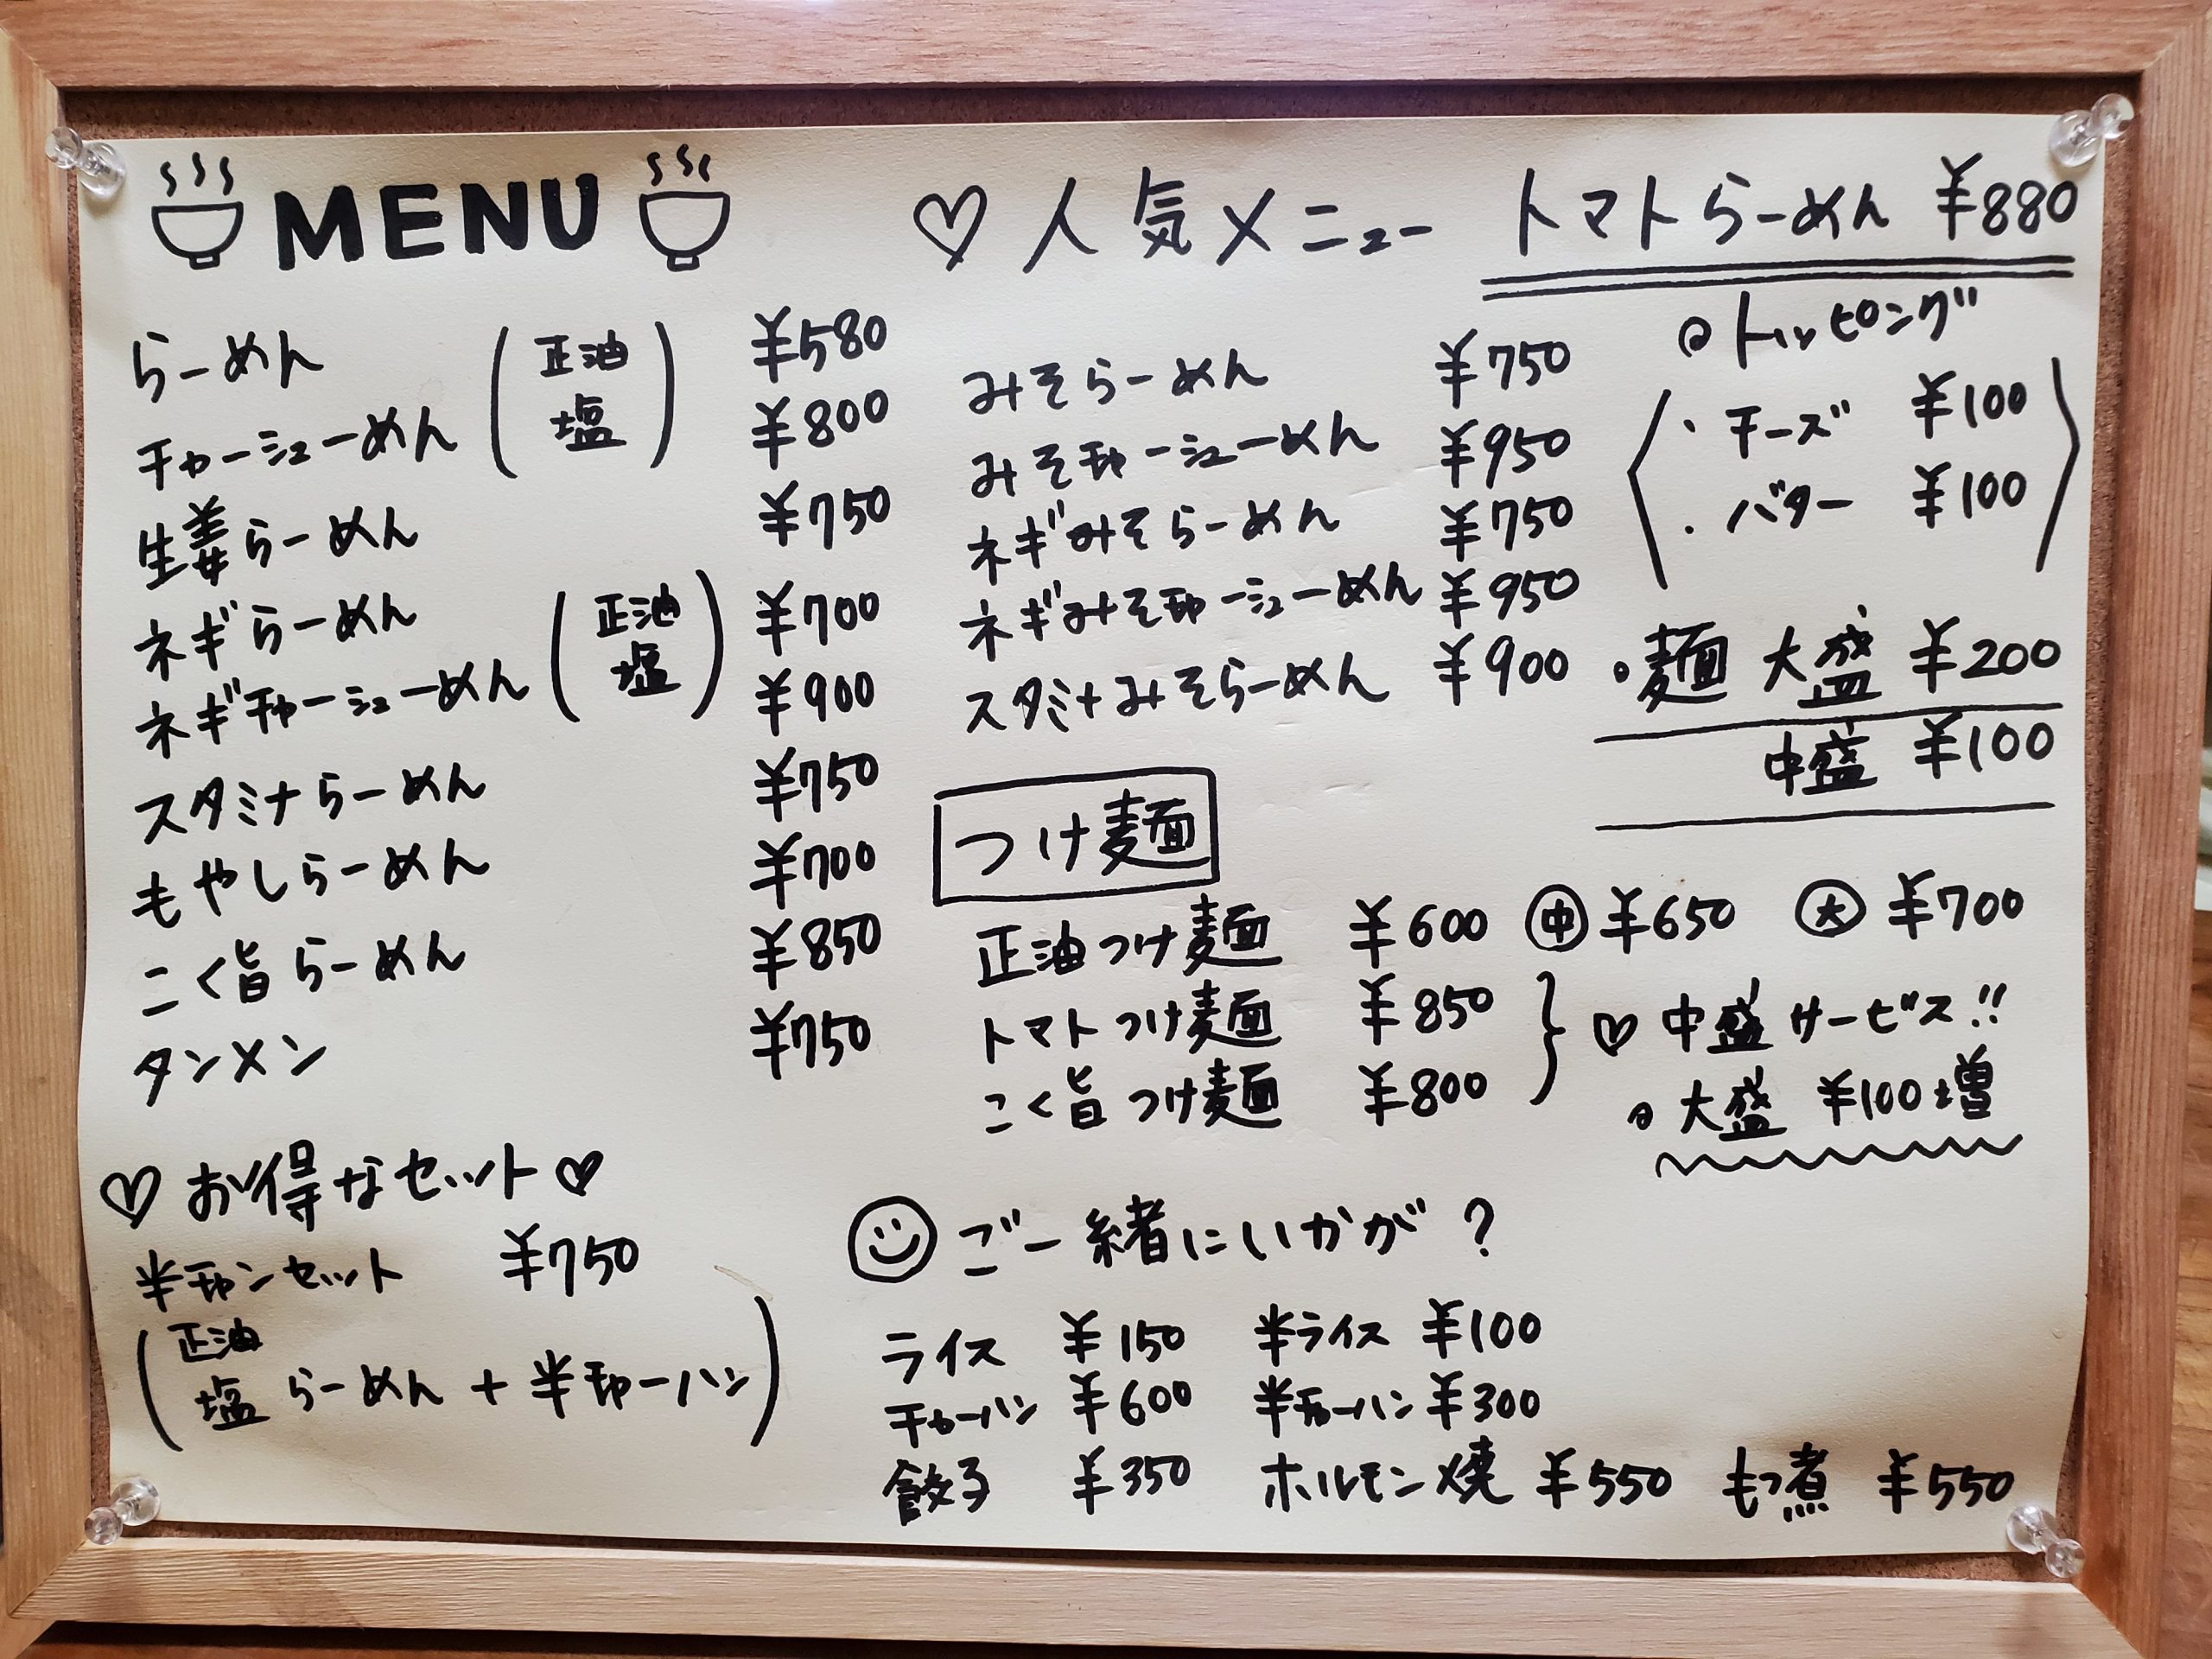 MENU
らーめん (正油 塩) ¥580
チャーシューめん ¥800
生姜らーめん ¥750
ネギらーめん (正油 塩) ¥700
ネギチャーシューめん ¥900
スタミナらーめん ¥750
もやしらーめん ¥700
こく旨らーめん ¥850
タンメン ¥750
♡お得なセット♡
半チャンセット ¥750
(正油 塩 らーめん + 半チャーハン)
♡人気メニュー トマトらーめん ¥880
みそらーめん ¥750
みそチャーシューめん ¥950
ネギみそらーめん ¥750
ネギみそチャーシューめん ¥950
スタミナみそらーめん ¥900
トッピング
・チーズ ¥100
・バター ¥100
・麺 大盛 ¥200
中盛 ¥100
つけ麺
正油つけ麺 ¥600 中 ¥650 大 ¥700
トマトつけ麺 ¥850
こく旨つけ麺 ¥800
♡中盛サービス!!
大盛 ¥100増
ご一緒にいかが?
ライス ¥150 半ライス ¥100
チャーハン ¥600 半チャーハン ¥300
餃子 ¥350 ホルモン焼 ¥550 もつ煮 ¥550